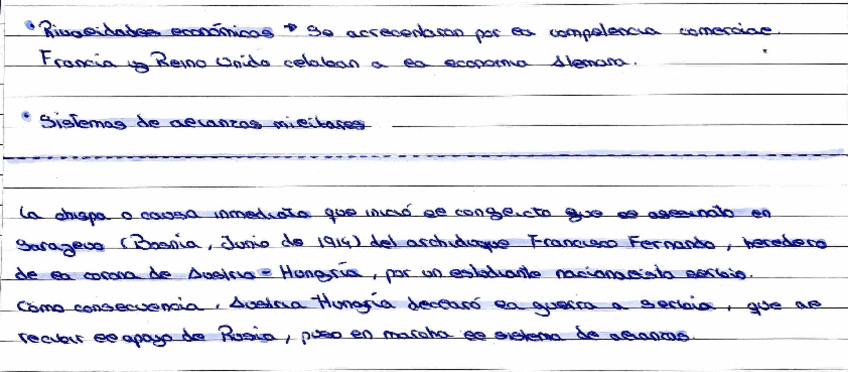 • Rivalidades económicas → Se acrecentaron por la competencia comercial.
Francia y Reino Unido celaban a la economía Alemana.
• Sistemas de alianzas militares
La chispa o causa inmediata que inició el conflicto fue el asesinato en
Sarajevo (Bosnia, Junio de 1914) del archiduque Francisco Fernando, heredero
de la corona de Austria-Hungría, por un estudiante nacionalista serbio.
Como consecuencia, Austria-Hungría declaró la guerra a Serbia, que al
recibir el apoyo de Rusia, puso en marcha el sistema de alianzas.